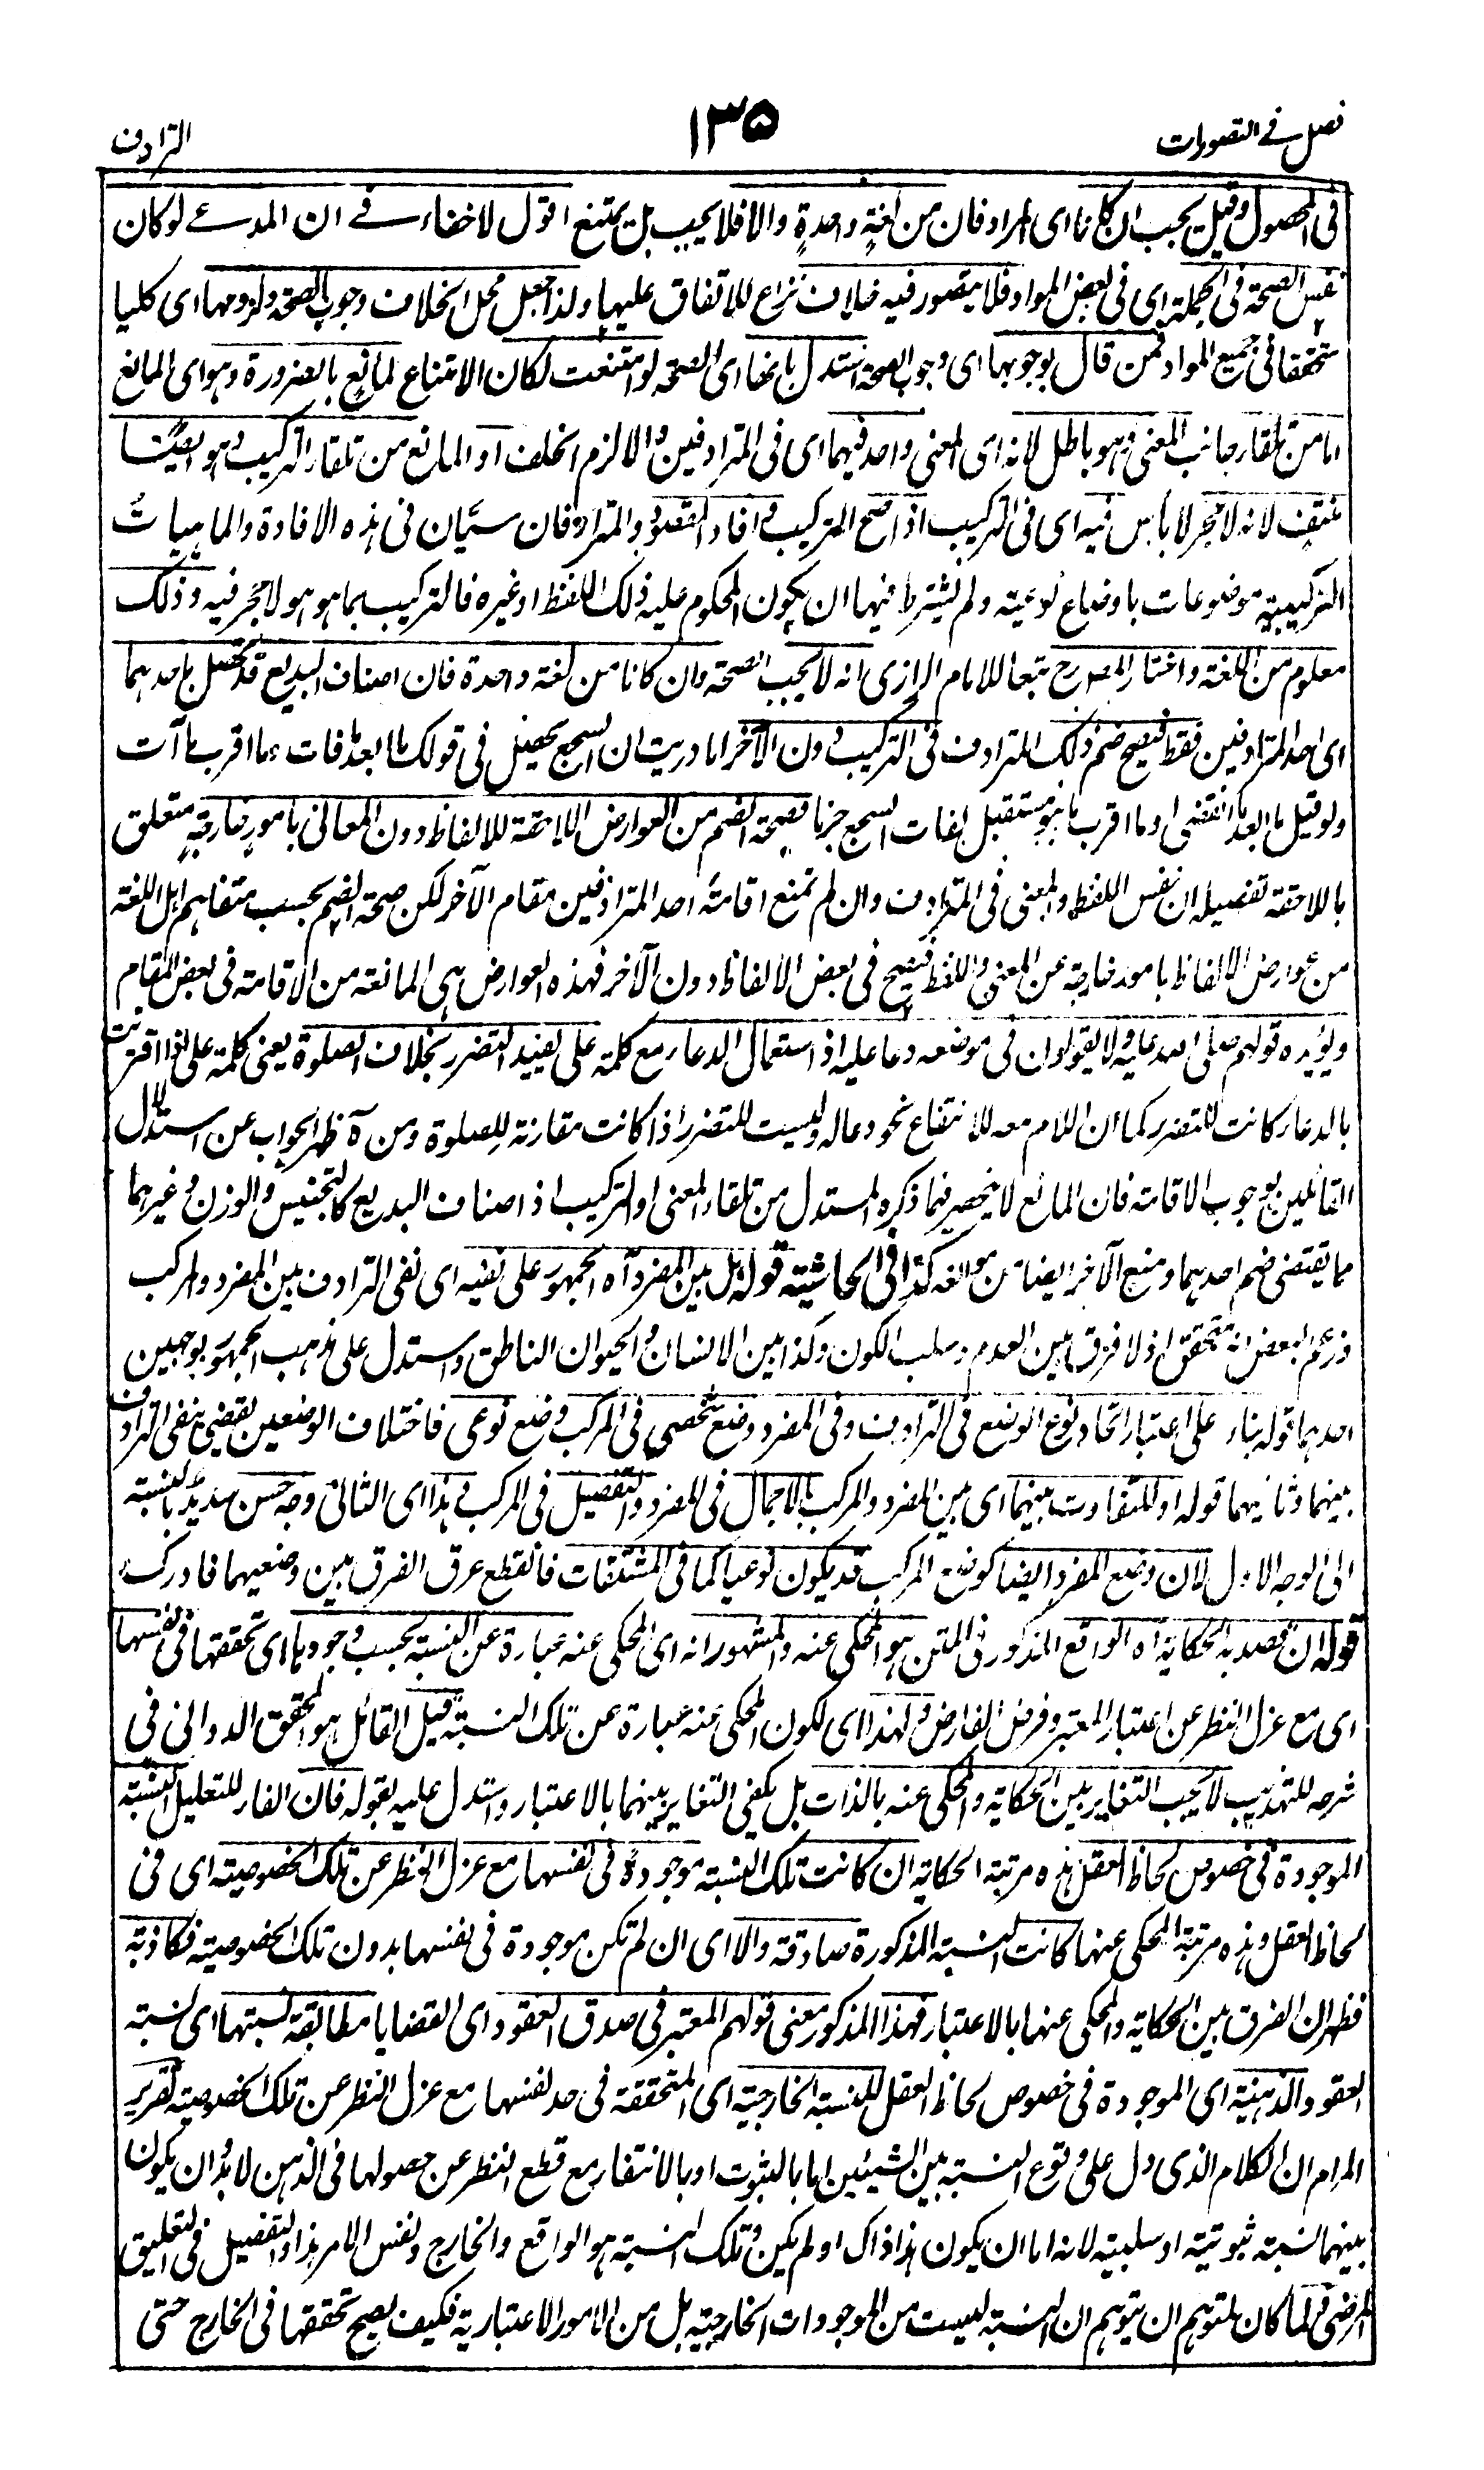 فصل فی التصورات
١٣٥
الترادف
فی المحصول وقیل یجب ان کلا نا ای المراد فان من لغة واحدة والا فلا یجب بل یمتنع اقول لا خفاء فی ان المدعی لو کان
نفس الصحة فی الجملة ای فی بعض المواد فلا یتصور فیه خلاف نزاع للاتفاق علیها ولذا جعل محل الخلاف وجوب الصحة ولزومها ای کلیا
متحققا فی جمیع المواد فمن قال بوجوبها ای وجوب الصحة استدل بانها ای الصحة لو امتنعت لکان الامتناع لمانع بالضرورة وهو ای المانع
اما من تلقاء جانب المعنی وهو باطل لانه ای المعنی واحد فیهما ای فی المترادفین والا لزم الخلف او المانع من تلقاء الترکیب وهو ایضا
منتف لانه لا حجر لا بأس فیه ای فی الترکیب اذا صح الترکیب وافاد المقصود والمترادفان سیّان فی هذه الافادة والماهیات
الترکیبیة موضوعات باوضاع نوعیة ولم یشترط فیها ان یکون المحکوم علیه ذلک اللفظ او غیره فالترکیب بما هو هو لا حجر فیه وذلک
معلوم من اللغة واختار المصرح تبعا للامام الرازی انه لا یجب الصحة وان کانا من لغة واحدة فان اصناف البدیع قد تحصل باحدهما
ای احد المترادفین فقط فیصح ضم ذلک المترادف فی الترکیب دون الآخر اما دریت ان السجع یحصل فی قولک ما ابعد ما فات وما اقرب ما آت
ولو قیل ما ابعد ما انقضی او ما اقرب ما هو مستقبل لفات السجع جزما فصحة الضم من العوارض اللاحقة للالفاظ دون المعانی بامور خارقة متعلق
باللاحقة تفصیله ان نفس اللفظ والمعنی فی المترادف وان لم تمنع اقامة احد المترادفین مقام الآخر لکن صحة الضم بحسب متفاهم اهل اللغة
من عوارض الالفاظ بامور خارجة عن المعنی واللفظ فیصح فی بعض الالفاظ دون الآخر فهذه العوارض هی المانعة من الاقامة فی بعض المقام
ویؤیده قولهم صلی الله علیه ولا یقولون فی موضعه دعا علیه اذ استعمال الدعاء مع کلمة علی یفید التضرر بخلاف الصلوة یعنی کلمة علی اذا اقترنت
بالدعاء کانت للتضرر کما ان اللام معه للانتفاع نحو دعا له ولیست للتضرر اذا کانت مقارنة للصلوة ومن آه ظهر الجواب عن استدلال
القائلین بوجوب الاقامة فان المانع لا ینحصر فیما ذکره المستدل من تلقاء المعنی او الترکیب اذ اصناف البدیع کالتجنیس والوزن وغیرهما
مما یقتضی ضم احدهما ومنع الآخر ایضا من موانعه کذا فی الحاشیة قوله بل بین المفرد آه الجمهور علی نفیه ای نفی الترادف بین المفرد والمرکب
وزعم البعض انه متحقق اذ لا فرق بین العدم وسلب الکون وکذا بین الانسان والحیوان الناطق واستدل علی مذهب الجمهور بوجهین
احدهما قوله بناء علی اعتبار اتحاد نوع الوضع فی الترادف وفی المفرد وضع شخصی فی المرکب وضع نوعی فاختلاف الوضعین یقتضی نفی الترادف
بینهما وثانیهما قوله او للتفاوت بینهما ای بین المفرد والمرکب بالاجمال فی المفرد والتفصیل فی المرکب وهذا ای الثانی وجه حسن سدید بالنسبة
الی الوجه الاول لان وضع المفرد ایضا کوضع المرکب قد یکون نوعیا کما فی المشتقات فانقطع عرق الفرق بین وضعیهما فادرک
قوله ان قصد به الحکایة آه الواقع المذکور فی المتن هو المحکی عنه والمشهور انه ای المحکی عنه عبارة عن النسبة بحسب وجودها ای تحققها فی نفسها
ای مع عزل النظر عن اعتبار المعتبر وفرض الفارض ولهذا ای لکون المحکی عنه عبارة عن تلک النسبة قیل القائل هو المحقق الدوانی فی
شرحه للتهذیب لا یجب التغایر بین الحکایة والمحکی عنه بالذات بل یکفی التغایر بینهما بالاعتبار واستدل علیه بقوله فان الفاء للتعلیل النسبة
الموجودة فی خصوص لحاظ العقل هذه مرتبة الحکایة ان کانت تلک النسبة موجودة فی نفسها مع عزل النظر عن تلک الخصوصیة ای فی
لحاظ العقل وهذه مرتبة المحکی عنها کانت النسبة المذکورة صادقة والا ای ان لم تکن موجودة فی نفسها بدون تلک الخصوصیة فکاذبة
فظهر ان الفرق بین الحکایة والمحکی عنها بالاعتبار فهذا المذکور معنی قولهم المعتبر فی صدق العقود ای القضایا مطابقة نسبتها ای نسبة
العقود الذهنیة ای الموجودة فی خصوص لحاظ العقل للنسبة الخارجیة ای المتحققة فی حد نفسها مع عزل النظر عن تلک الخصوصیة تقریر
المرام ان الکلام الذی دل علی وقوع النسبة بین الشیئین اما بالثبوت او بالانتفاء مع قطع النظر عن حصولها فی الذهن لا بد ان یکون
بینهما نسبة ثبوتیة او سلبیة لانه اما ان یکون هذا ذاک او لم یکن وتلک النسبة هو الواقع والخارج ونفس الامر هذا والتفصیل فی التعلیق
المرضی ولما کان لمتوهم ان یتوهم ان النسبة لیست من الموجودات الخارجیة بل من الامور الاعتباریة فکیف یصح تحققها فی الخارج حتی